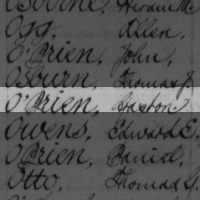 Osborne, Hiram M.
Ogg, Allen,
O'Brien, John,
Osburn, Thomas J.
O'Brien, Saxton
Owens, Edward E.
O'Brien, Daniel,
Otto, Thomas G.